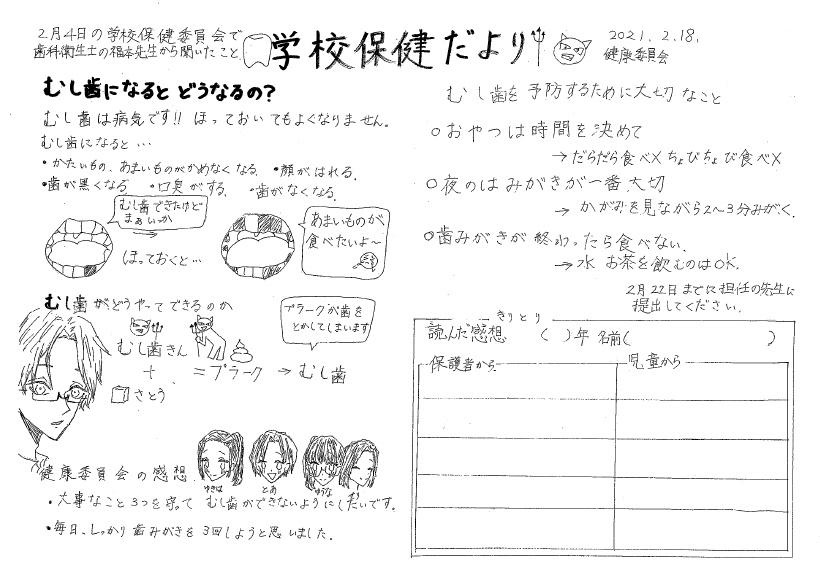 2月4日の学校保健委員会で
歯科衛生士の福本先生から聞いたこと
学校保健だより
2021.2.18.
健康委員会
むし歯になると どうなるの?
むし歯は病気です!! ほっておいてもよくなりません。
むし歯になると…
・かたいもの、あまいものがかめなくなる ・顔がはれる.
・歯が黒くなる ・口臭がする. ・歯がなくなる.
むし歯できたけど
まぁいっか
ほっておくと…
あまいものが
食べたいよ〜
むし歯がどうやってできるのか
プラークが歯を
とかしてしまいます
むし歯きん
+
さとう
=プラーク → むし歯
健康委員会の感想
ゆきは
とあ
ゆうな
・大事なこと3つを守って むし歯ができないようにしたいです。
・毎日、しっかり歯みがきを3回しようと思いました.
むし歯を予防するために大切なこと
○おやつは時間を決めて
→だらだら食べ× ちょびちょび食べ×
○夜のはみがきが一番大切
→ かがみを見ながら2〜3分みがく.
○歯みがきが終わったら食べない.
→水 お茶を飲むのはOK.
2月22日までに担任の先生に
提出してください.
きりとり
読んだ感想 ( )年 名前( )
保護者から
児童から